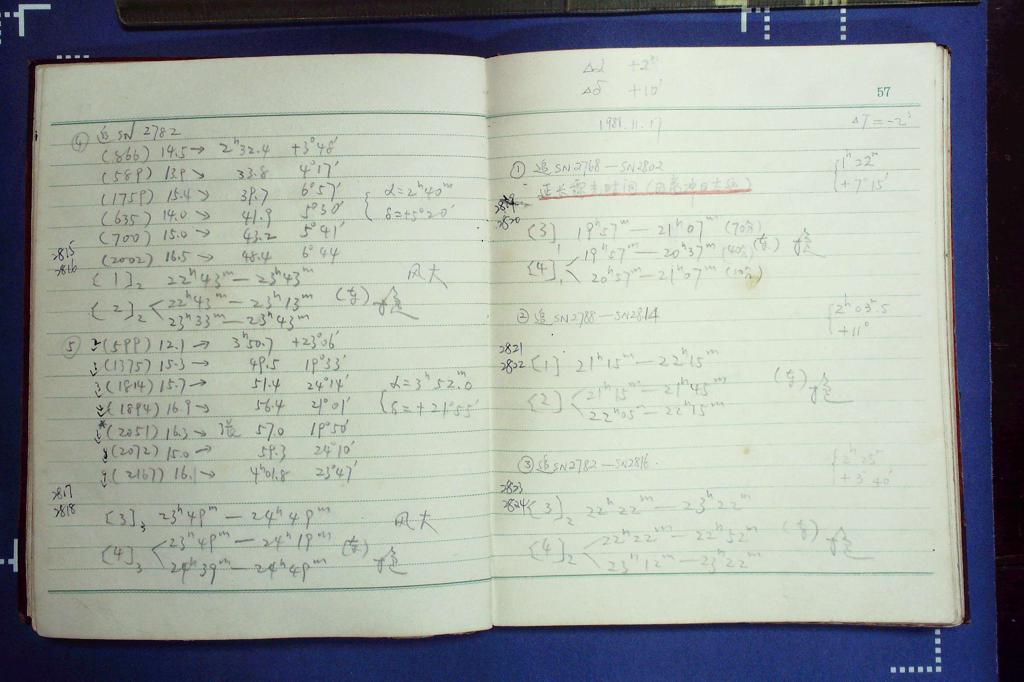 ④ 追 SN 2782
(866) 14.5→ 2ʰ32.4 +3°48′
(589) 13.9→ 33.8 4°17′
(1759) 15.4→ 39.7 6°57′
(635) 14.0→ 41.9 5°30′
(700) 15.0→ 43.2 5°41′
(2002) 16.5→ 48.4 6°44
α=2ʰ40ᵐ
δ=+5°20′
2815
2816
[1]₂ 22ʰ43ᵐ—23ʰ43ᵐ 风大
[2]₂ 22ʰ43ᵐ—23ʰ13ᵐ
23ʰ33ᵐ—23ʰ43ᵐ
⑤ (599) 12.1→ 3ʰ50.7 +23°06′
(1375) 15.3→ 49.5 19°33′
(1814) 15.7→ 51.4 24°14′
(1894) 16.9→ 56.4 21°01′
(2051) 16.3→ 57.0 19°50′
(2072) 15.0→ 59.3 24°10′
(2167) 16.1→ 4ʰ01.8 23°47′
α=3ʰ52ᵐ.0
δ=+21°55′
2817
2818
[3]₃ 23ʰ49ᵐ—24ʰ49ᵐ 风大
[4]₃ 23ʰ49ᵐ—24ʰ19ᵐ
24ʰ39ᵐ—24ʰ49ᵐ
Δα +2ᵐ
Δδ +10′
57
1981.11.17 ΔT=-2ˢ
① 追 SN2768—SN2802
1ʰ=2ᵐ
+7°15′
2820
[3]₁ 19ʰ57ᵐ—21ʰ07ᵐ (70分)
[4]₁ 19ʰ57ᵐ—20ʰ37ᵐ (40分)
20ʰ57ᵐ—21ʰ07ᵐ (10分)
② 追 SN2788—SN2814
2ʰ03ᵐ.5
+11°
2821
2822
[1] 21ʰ15ᵐ—22ʰ15ᵐ
[2] 21ʰ15ᵐ—21ʰ45ᵐ
22ʰ05ᵐ—22ʰ15ᵐ
③ 追 SN2782—SN2816
2823
2824
[3]₂ 22ʰ22ᵐ—23ʰ22ᵐ
[4]₂ 22ʰ22ᵐ—22ʰ52ᵐ
23ʰ12ᵐ—23ʰ22ᵐ